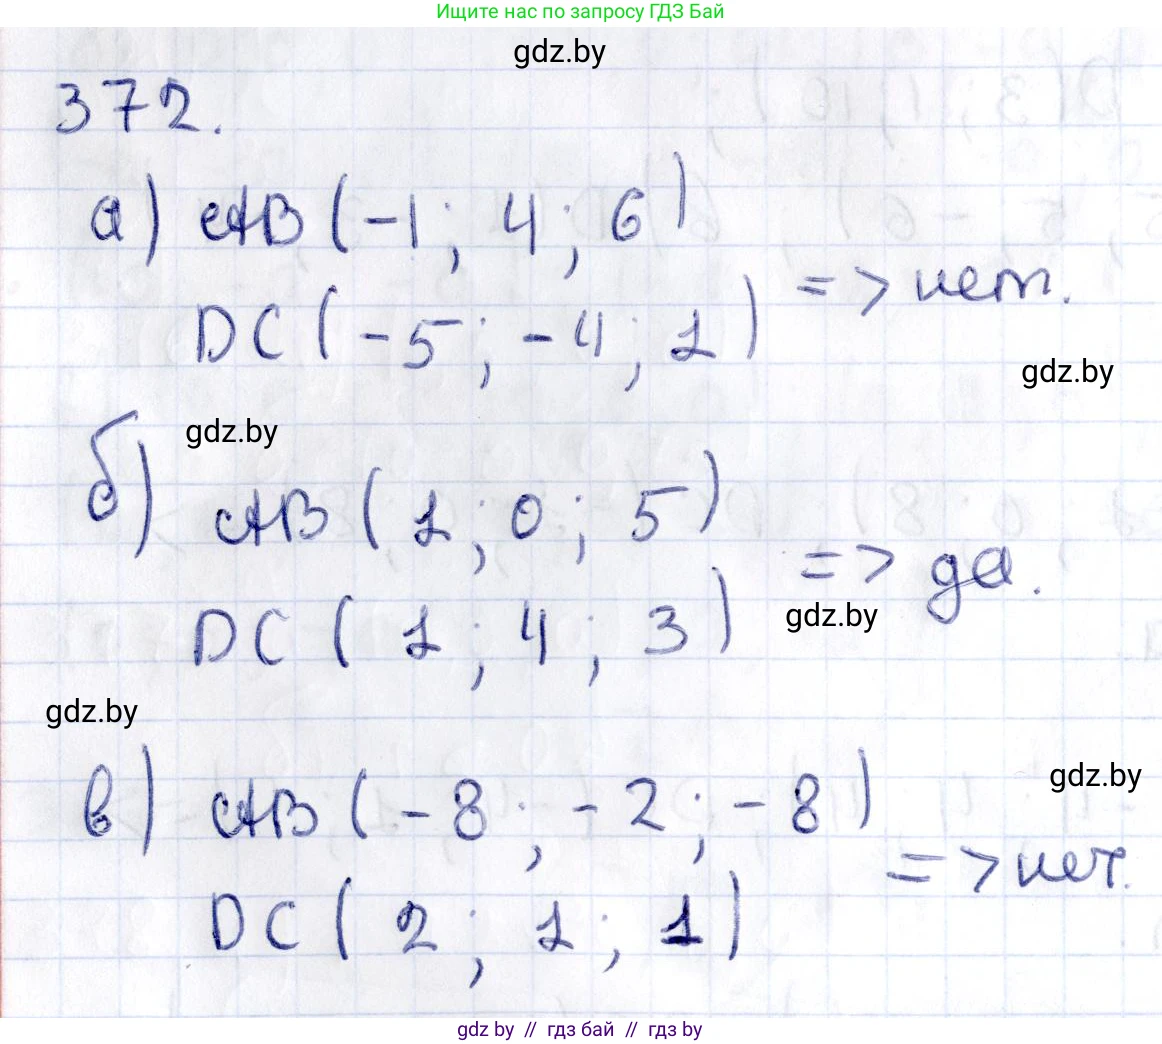 Ищите нас по запросу ГДЗ Бай
gdz.by
372.
а) AB (-1; 4; 6)
DC (-5; -4; 1) => нет.
gdz.by
gdz.by
б) AB (1; 0; 5)
DC (1; 4; 3) => да.
gdz.by
gdz.by
gdz.by
в) AB (-8; -2; -8)
DC (2; 1; 1) => нет.
gdz by // гдз бай // гдз by